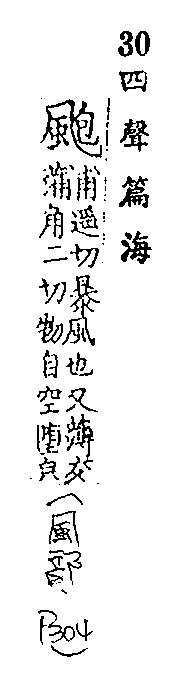 30四聲篇海
颮
甫遥切暴風也又薄交
蒲角二切物自空墮皃
（風部，
P304）